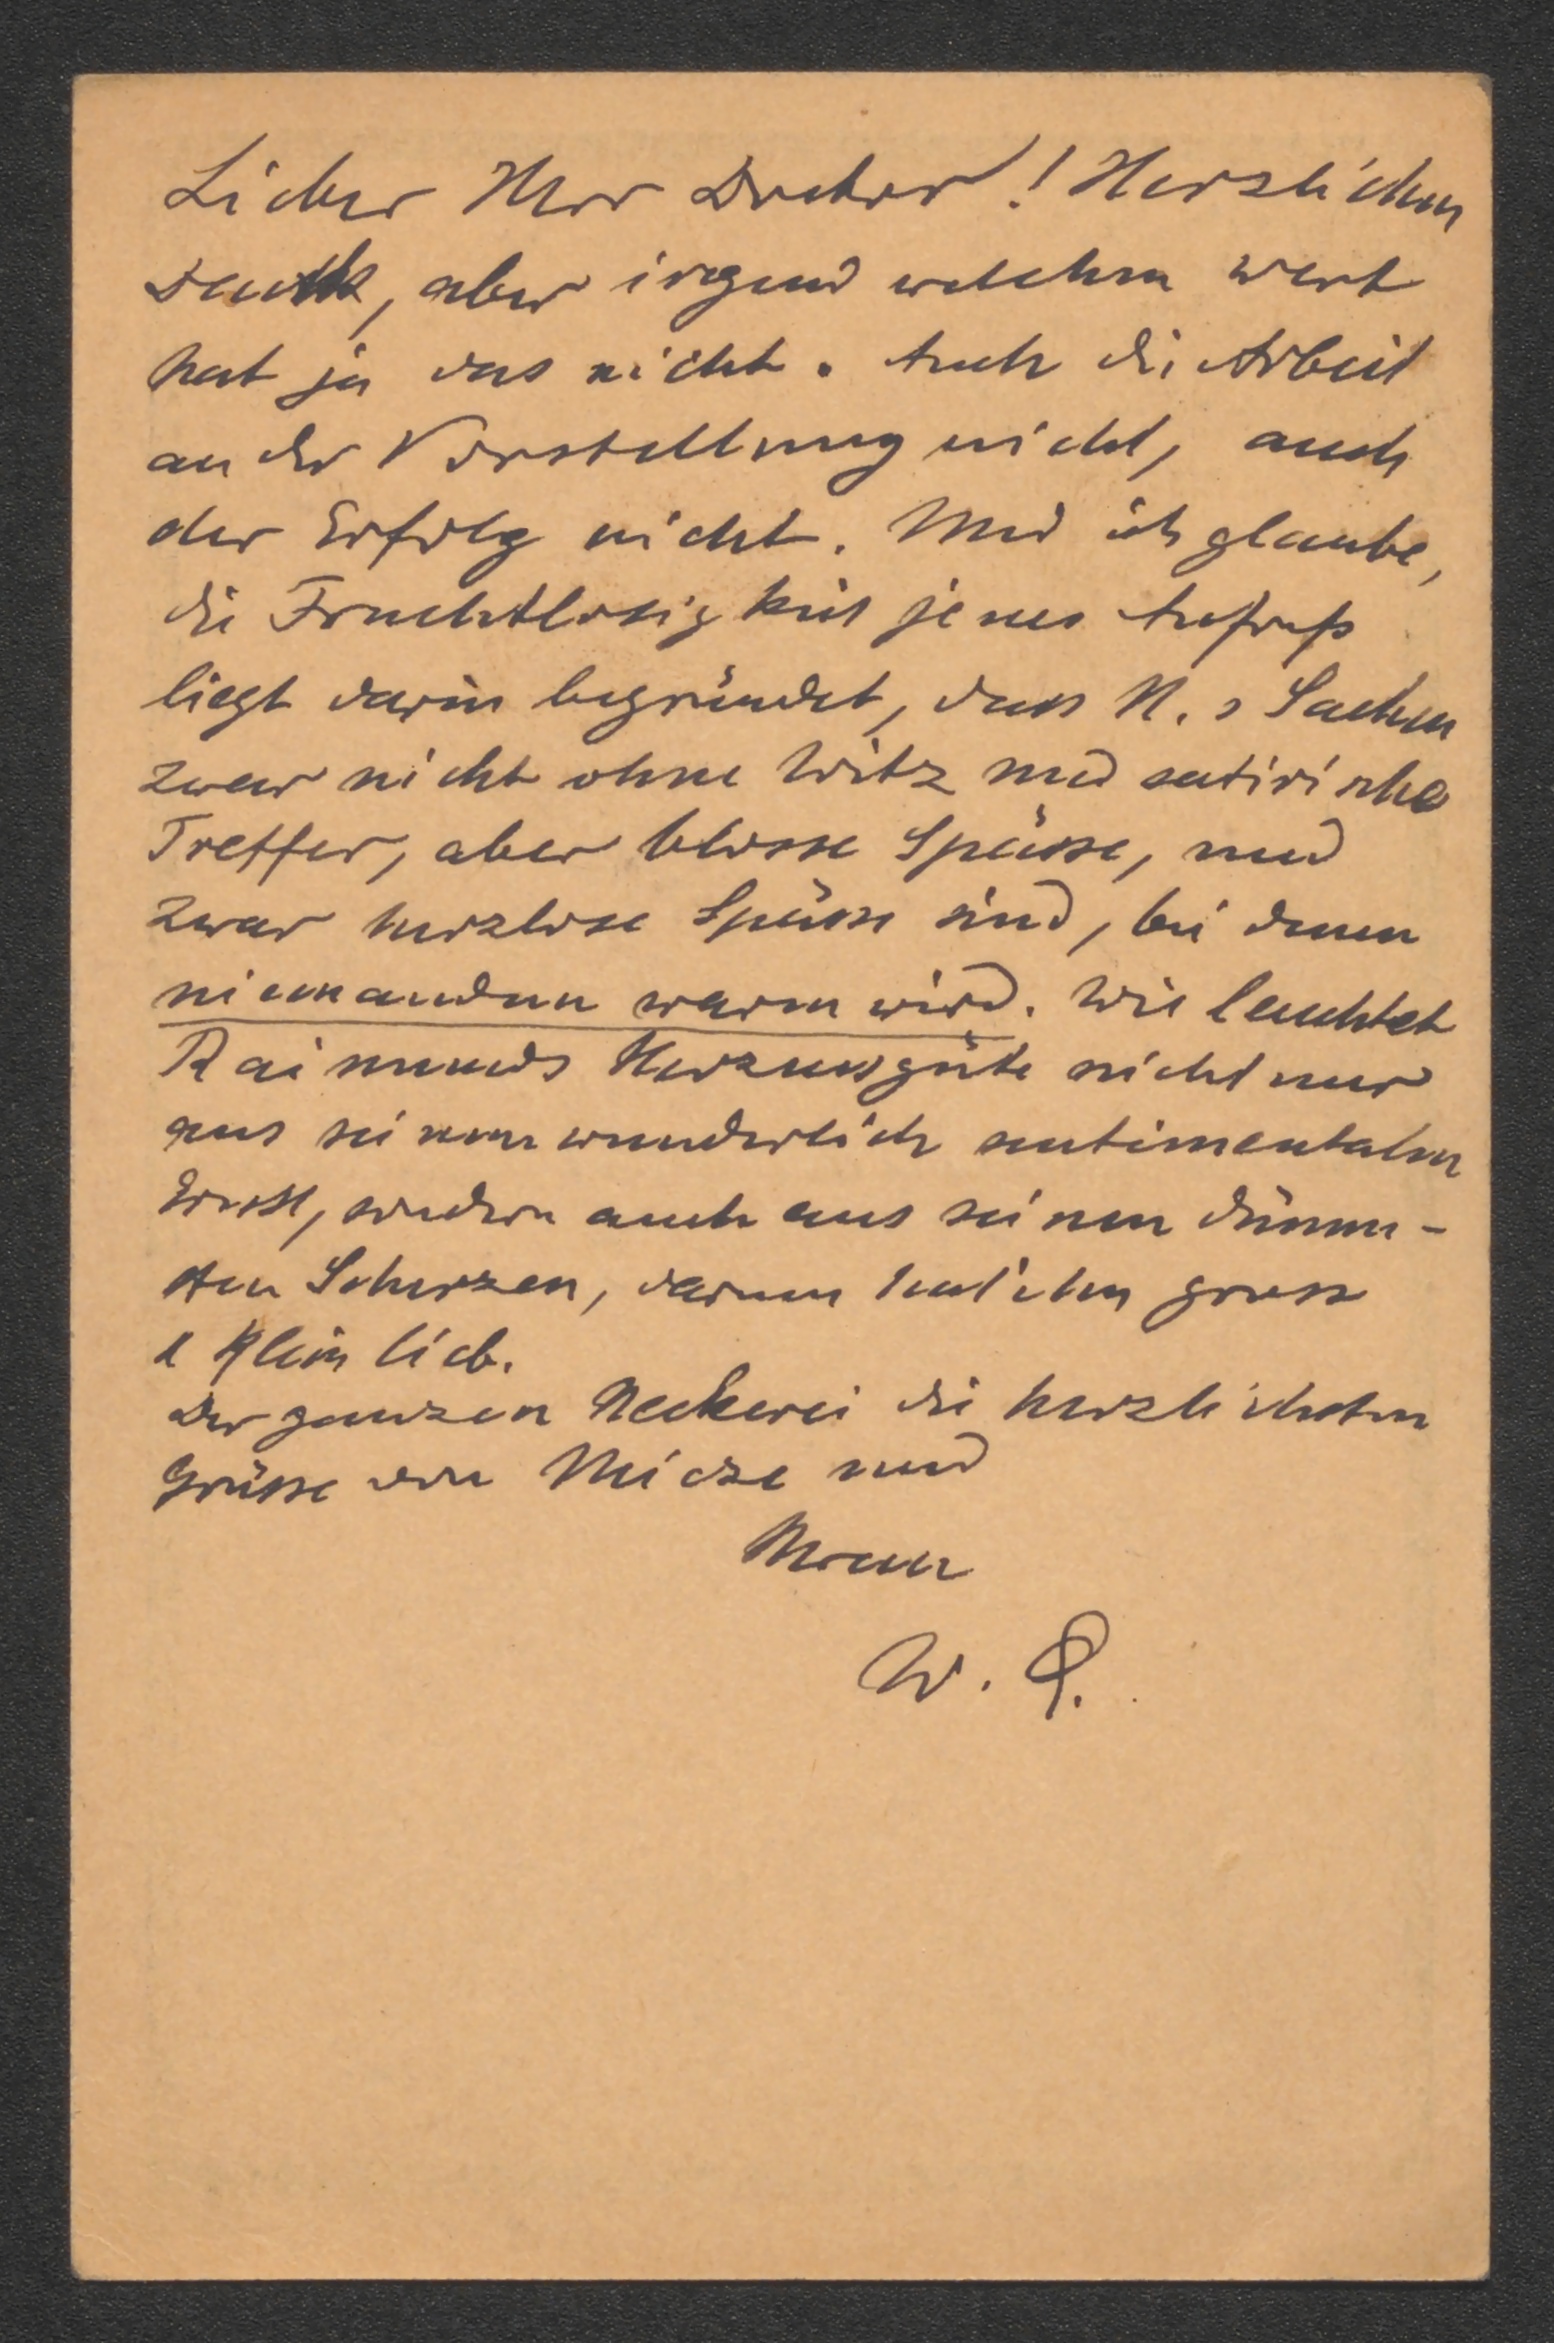 Lieber Herr Doctor! Herzlichen
Dank, aber irgend welchen Wert
hat ja das nicht. Auch die Arbeit
an der Vorstellung nicht, auch
der Erfolg nicht. Und ich glaube,
die Fruchtlosigkeit jenes
liegt darin begründet, dass N.s Sachen
zwar nicht ohne Witz und satirische
Treffer, aber blosse Spässe, und
zwar herzlose Spässe sind, bei denen
niemandem warm wird. Wie leuchtet
Raimunds Herzensgüte nicht nur
aus seinem wunderlich sentimentalen
Ernst, sondern auch aus seinen dümm-
sten Scherzen, darum hat ihn gross
u klein lieb.
Der ganzen Neckerei die herzlichsten
Grüsse von Mieze und
Ihrem
W.